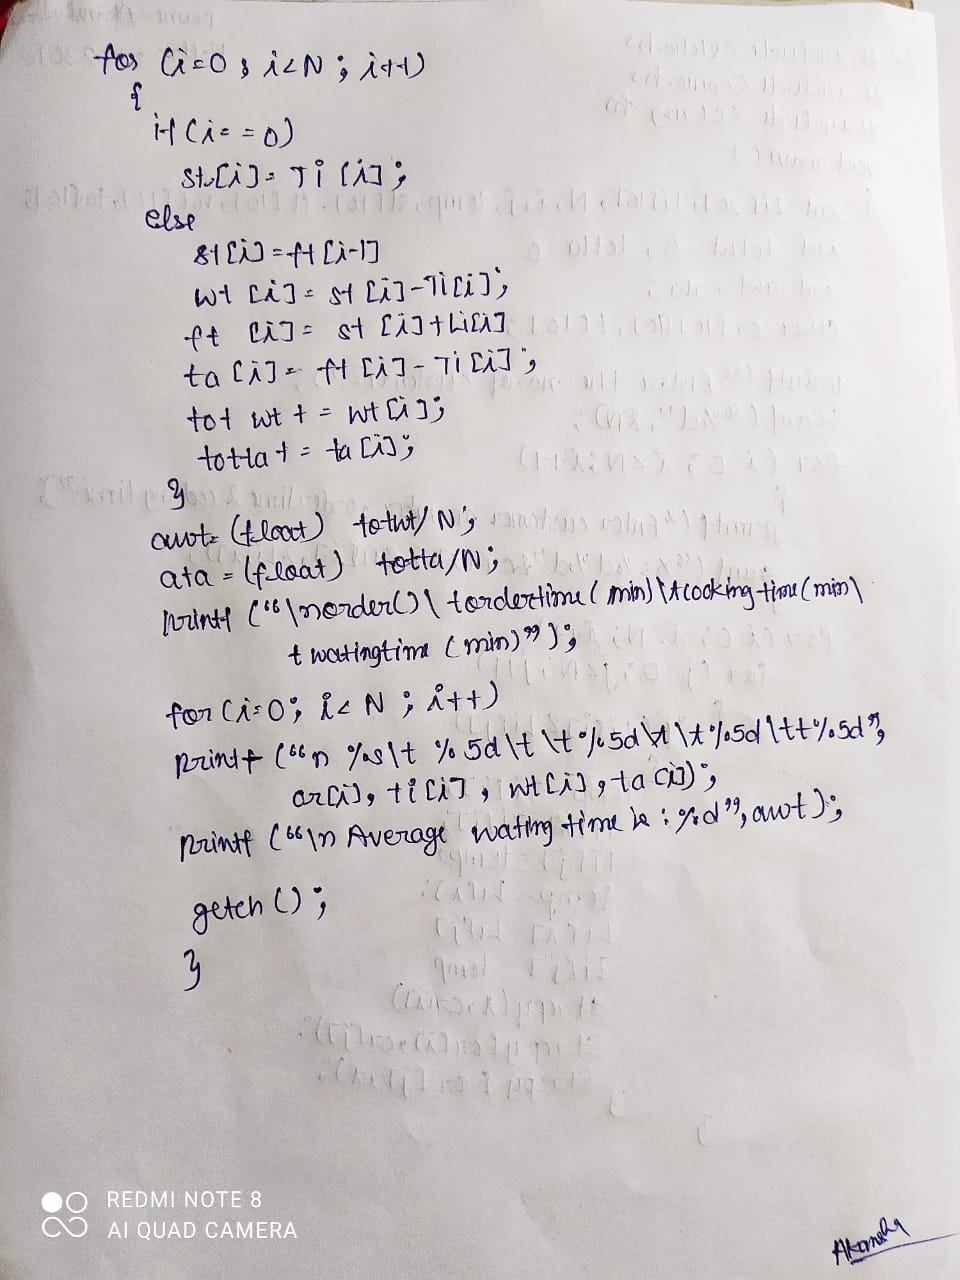 for (i=0; i<N; i++)
{
if (i==0)
st[i]= Ti [i];
else
st[i]=ft[i-1]
wt [i]= st [i]-Ti[i];
ft [i]= st [i]+Li[i]
ta [i]= ft [i]- Ti [i];
tot wt + = wt[i];
totta + = ta [i];
}
awt= (float) totwt/ N;
ata = (float) totta/N;
printf ("\norder()\ tordertime ( min) \tcooking-time (min) \
t watingtime (min)");
for (i=0; i< N ; i++)
printf ("n %s\t % 5d\t \t %5d \t \t %5d \tt%5d",
or[i], ti[i], wt[i], ta [i]);
printf ("\n Average wating time is : %d", awt);
getch ();
}
REDMI NOTE 8
AI QUAD CAMERA